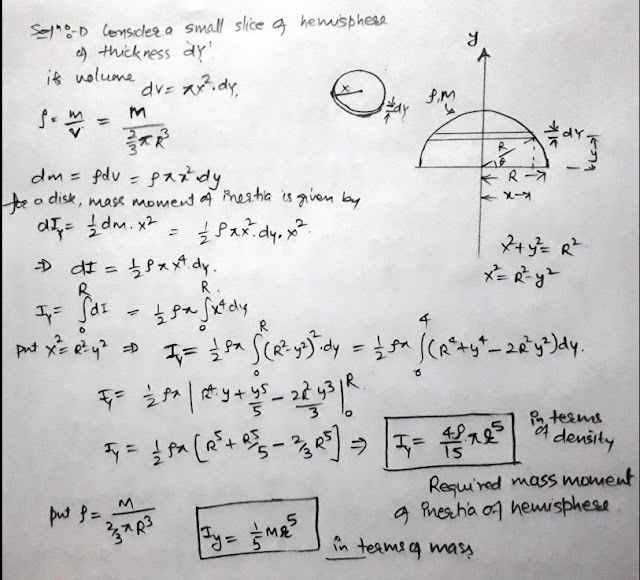 Solno:-D Consider a small slice of hemisphere
of thickness dy'
its volume dv = πx².dy.
ρ = m/v = M / (2/3 πR³)
dm = ρdv = ρπx².dy
for a disk, mass moment of inertia is given by
dIy = 1/2 dm.x² = 1/2 ρπx².dy.x².
⇒ dI = 1/2 ρπx⁴.dy.
Iy = ∫₀ᴿ dI = 1/2 ρπ ∫₀ᴿ x⁴.dy
put x² = R²-y² ⇒ Iy = 1/2 ρπ ∫₀ᴿ (R²-y²)².dy = 1/2 ρπ ∫₀⁴ (R⁴+y⁴-2R²y²)dy.
Iy = 1/2 ρπ | R⁴.y + y⁵/5 - 2R²y³/3 |₀ᴿ
Iy = 1/2 ρπ [R⁵ + R⁵/5 - 2/3 R⁵] ⇒ Iy = 4ρ/15 πR⁵ in terms of density
Required mass moment
of inertia of hemisphere.
put ρ = M / (2/3 πR³)
Iy = 1/5 MR⁵ in terms of mass
x
dy
y
ρ,M
dy
y
R
θ
R
x
x²+y² = R²
x² = R²-y²